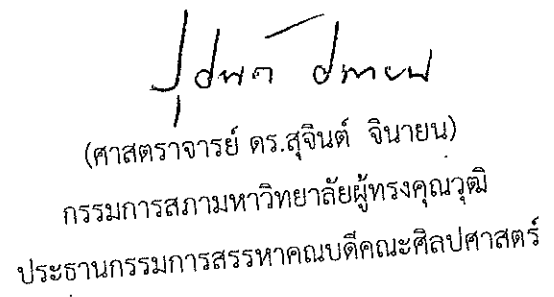 (ศาสตราจารย์ ดร.สุจินต์ จินายน)
กรรมการสภามหาวิทยาลัยผู้ทรงคุณวุฒิ
ประธานกรรมการสรรหาคณบดีคณะศิลปศาสตร์